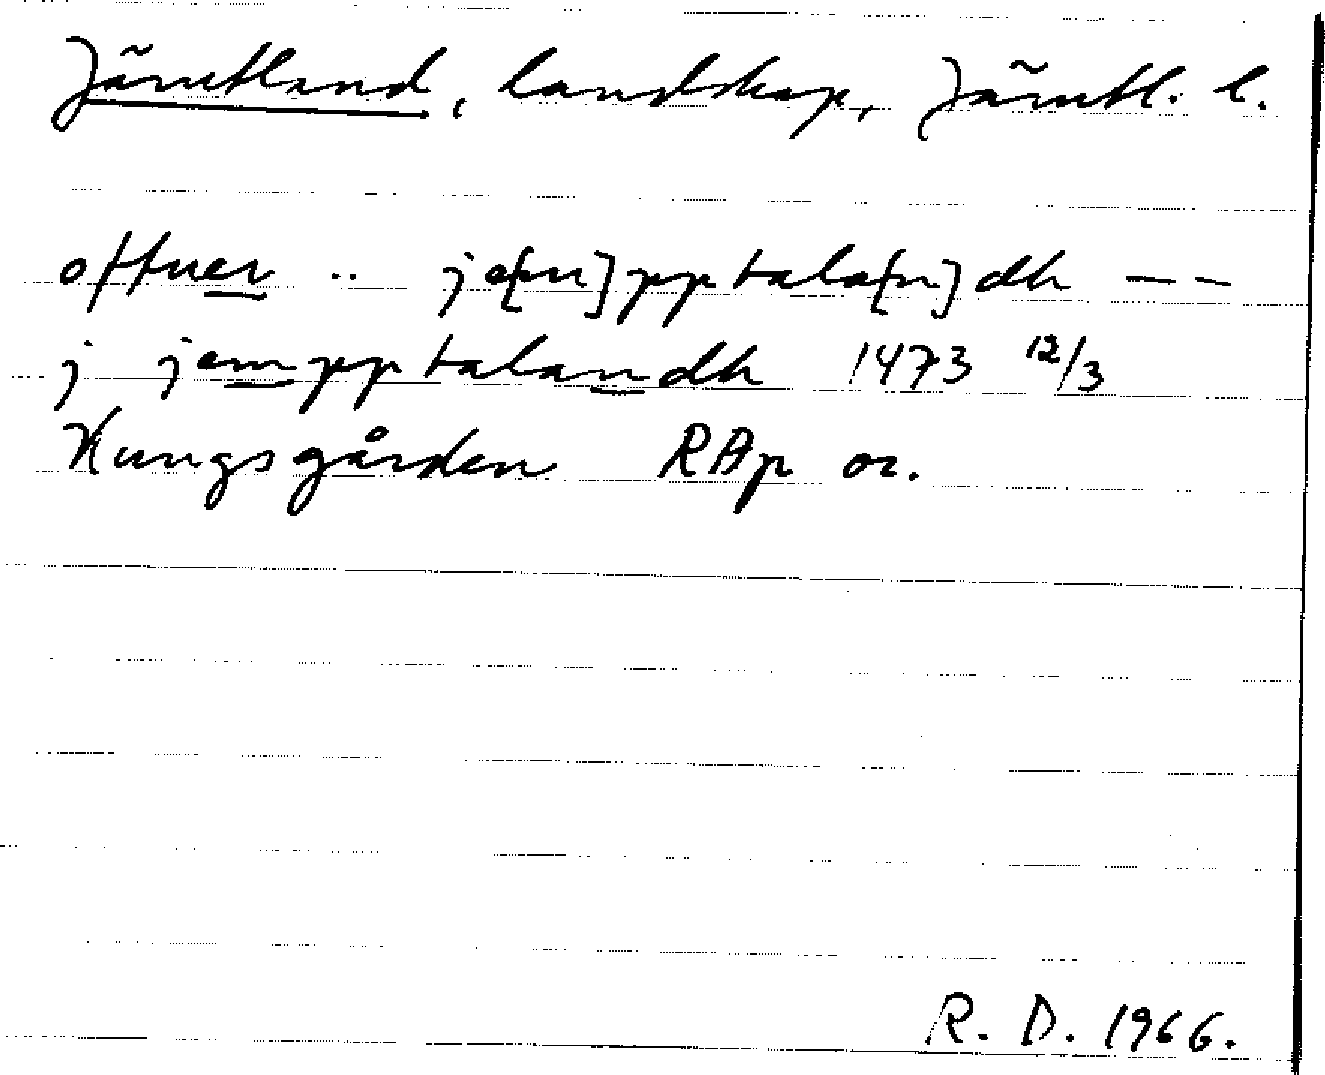 Jämtland, landskap, Jämtl. l.
offuer .. je[m]pptala[n]dh — —
j jempptalandh 1473 12/3
Kungsgården RAp or.
R. D. 1966.